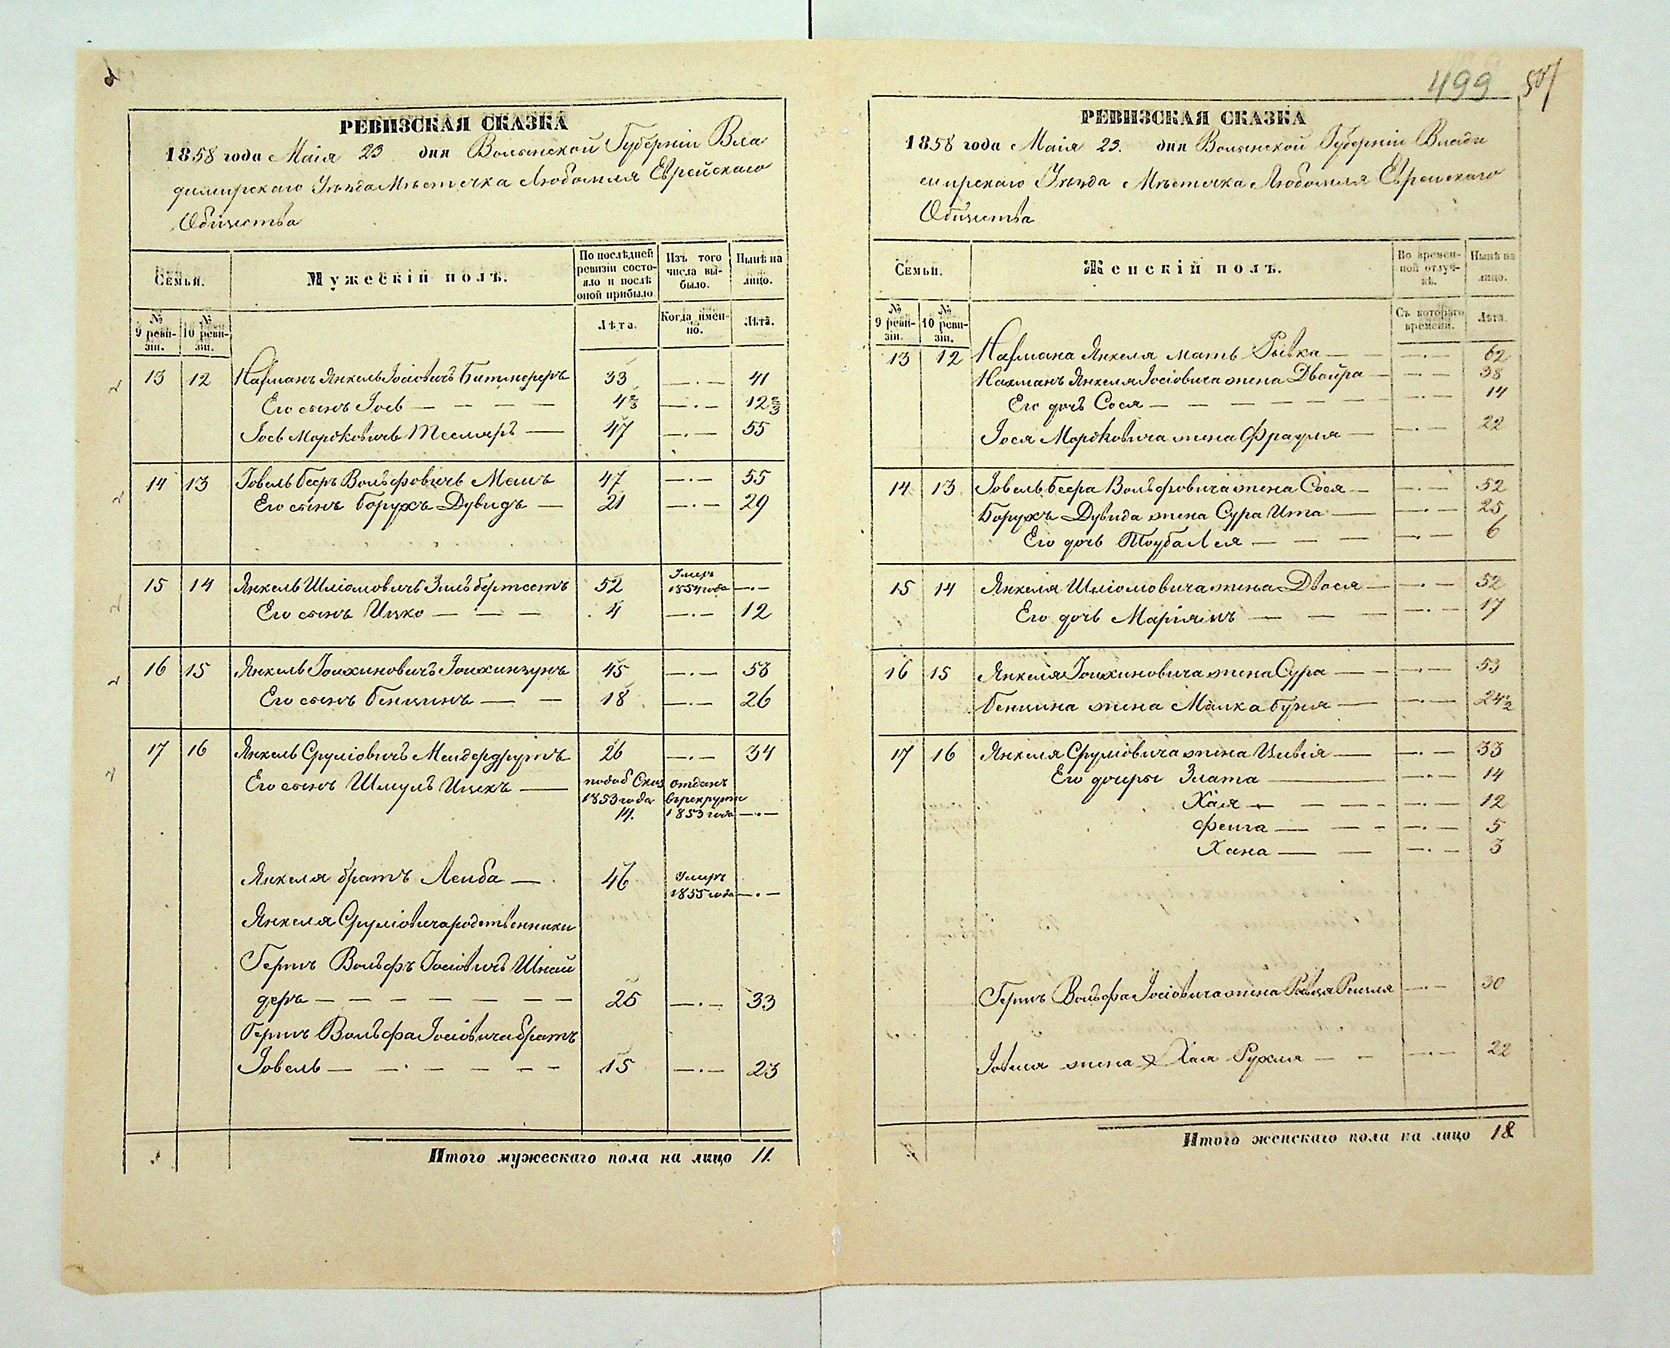 499 501
РЕВИЗСКАЯ СКАЗКА
1858 года Маія 23 дня Волынской Губерніи Вла
димирскаго Уѣзда Мѣстечка Любомля Еврейскаго
Общества
Семьи.
Мужескій полъ.
По послѣдней ревизіи состояло и послѣ оной прибыло
Изъ того числа выбыло.
Нынѣ на лицо.
№ 9 ревизіи.
№ 10 ревизіи.
Лѣта.
Когда именно.
Лѣта.
13 12 Нахманъ Янкель Іосіовичъ 33 — . — 41
Его сынъ Іось — — — — 4⅔ — . — 12⅔
Іось Мордковичъ Тесляръ — 47 — . — 55
14 13 Іовель Бееръ Вольфовичъ Мель 47 — . — 55
Его сынъ Борухъ Дувидъ — 21 — . — 29
15 14 Янкель Шліомовичъ 52 Умеръ 1854 года — . —
Его сынъ Ицко — — — 4 — . — 12
16 15 Янкель Іоихиновичъ 45 — . — 53
Его сынъ Бенцинъ — — 18 — . — 26
17 16 Янкель Сруліовичъ 26 — . — 34
Его сынъ Шмуль Ицекъ — 1853 года 14. отданъ въ рекруты 1853 года — . —
Янкеля братъ Леиба — 46 Умеръ 1855 года — . —
Янкеля Сруліовича родственники
Гершъ Вольфъ Іосіовичъ Шнай
деръ — — — — — — — 25 — . — 33
Гершъ Вольфа Іосіовича братъ
Іовель — — . — — — — 15 — . — 23
Итого мужескаго пола на лицо 11.
РЕВИЗСКАЯ СКАЗКА
1858 года Маія 23. дня Волынской Губерніи Влади
мирскаго Уѣзда Мѣстечка Любомля Еврейскаго
Общества
Семьи.
Женскій полъ.
Во временной отлучкѣ.
Нынѣ на лицо.
№ 9 ревизіи.
№ 10 ревизіи.
Съ котораго времени.
Лѣта.
13 12 Нахмана Янкеля мать Рывка — — . — 62
Нахманъ Янкеля Іосіовича жена Двойра — — . — 38
Его дочь Сося — — — — — — — . — 14
Іося Мордковича жена Фрадля — — . — 22
14 13 Іовель Беера Вольфовича жена Сося — — . — 52
Борухъ Дувида жена Сура Ита — — . — 25
Его дочь Тоуба Лея — — — — . — 6
15 14 Янкеля Шліомовича жена Двося — — . — 52
Его дочь Маріямъ — — — — . — 17
16 15 Янкеля Іоихиновича жена Сура — — — . — 53
Бенцина жена Малка Буня — — . — 24½
17 16 Янкеля Сруліовича жена Цивія — — . — 33
Его дочери Злата — — — . — 14
Хая — — — — — . — 12
Феига — — — — . — 5
Хана — — — . — 3
Гершъ Вольфа Іосіовича жена Ривця Рейзля — . — 30
Іовеля жена Хая Рухля — — — . — 22
Итого женскаго пола на лицо 18